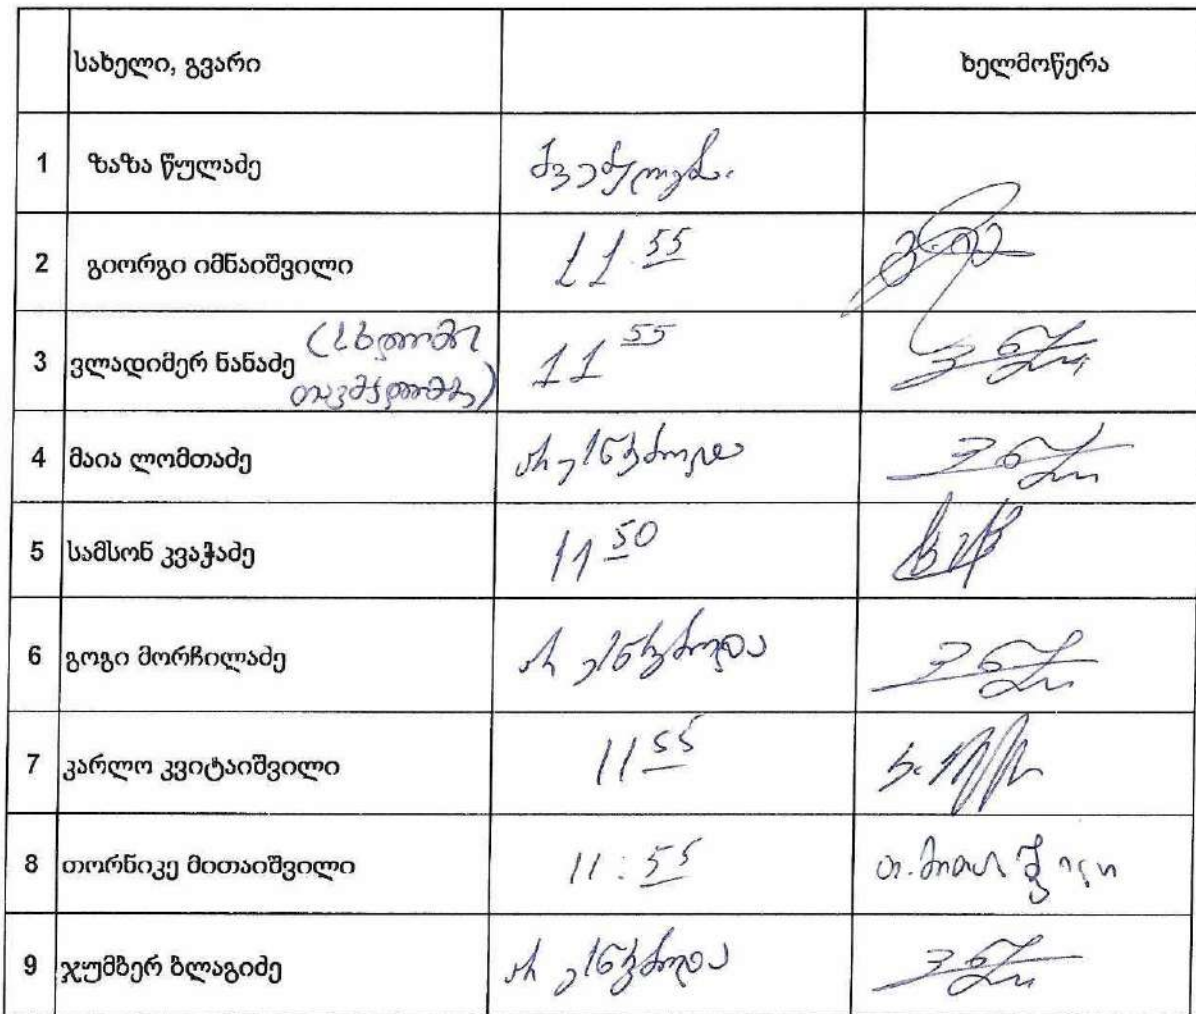 სახელი, გვარი ხელმოწერა
1 ზაზა წულაძე შვებულება.
2 გიორგი იმნაიშვილი 11.55
3 ვლადიმერ ნანაძე (სხდომის 11 55
თავმჯდომარე)
4 მაია ლომთაძე არ ესწრებოდა
5 სამსონ კვაჭაძე 11 50
6 გოგი მორჩილაძე არ ესწრებოდა
7 კარლო კვიტაიშვილი 11 55
8 თორნიკე მითაიშვილი 11:55 თ. მითაიშვილი
9 ჯუმბერ ბლაგიძე არ ესწრებოდა